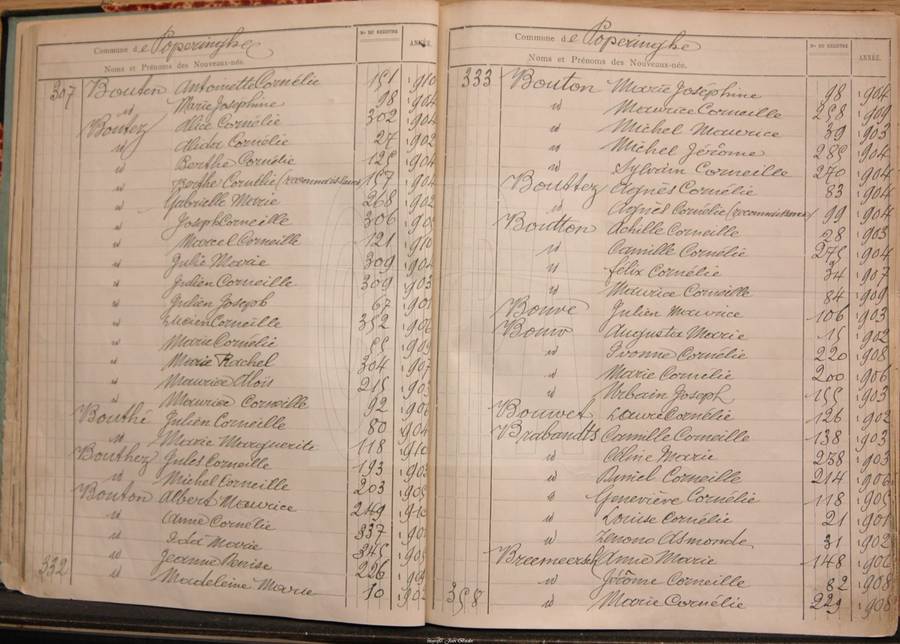 Commune de Poperinghe
Nos DU REGISTRE
ANNÉE.
Noms et Prénoms des Nouveaux-nés.
307 Bouten Antoinette Cornélie 151 1910
id Marie Joséphine 98 1904
Boutez Alice Cornélie 302 1904
id Alida Cornélie 27 1902
id Berthe Cornélie 125 1904
id Berthe Cornélie (reconnaissance) 157 1904
id Gabrielle Marie 268 1902
id Joseph Corneille 306 1905
id Marcel Corneille 121 1910
id Julie Marie 309 1904
id Julien Corneille 309 1903
id Julien Joseph 67 1901
id Lucien Corneille 352 1906
id Marie Cornélie 1909
id Marie Rachel 304 1907
id Maurice Aloïs 215 1903
id Maurice Corneille 92 1906
Bouthé Julien Corneille 80 1904
id Marie Marguerite 118 1910
Bouthez Jules Corneille 193 1903
id Michel Corneille 203 1905
Bouton Albert Maurice 249 1910
id Anna Cornélie 337 1901
id Ida Marie 345 1905
id Jeanne 226 1909
332 id Madeleine Marie 10 1902
Commune de Poperinghe
Nos DU REGISTRE
ANNÉE.
Noms et Prénoms des Nouveaux-nés.
333 Bouton Marie Joséphine 98 1904
id Maurice Corneille 258 1909
id Michel Maurice 39 1903
id Michel Jérôme 285 1904
id Sylvain Corneille 270 1904
Bouttez Agnès Cornélie 83 1904
id Agnès Cornélie (reconnaissance) 99 1904
Boutton Achille Corneille 28 1903
id Camille Cornélie 275 1904
id Félix Cornélie 34 1907
id Maurice Corneille 84 1909
Bouve Julien Maurice 106 1903
Bouw Augusta Marie 15 1902
id Yvonne Cornélie 220 1908
id Marie Cornélie 200 1906
id Urbain Joseph 155 1903
Bouwet Laure Cornélie 126 1902
Brabandts Camille Corneille 138 1903
id Céline Marie 258 1903
id Daniel Corneille 214 1906
id Geneviève Cornélie 118 1905
id Louise Cornélie 21 1901
id Zenono Osmonde 31 1902
Braemeersch Anna Marie 148 1906
id Jérôme Corneille 82 1908
358 id Marie Cornélie 229 1908